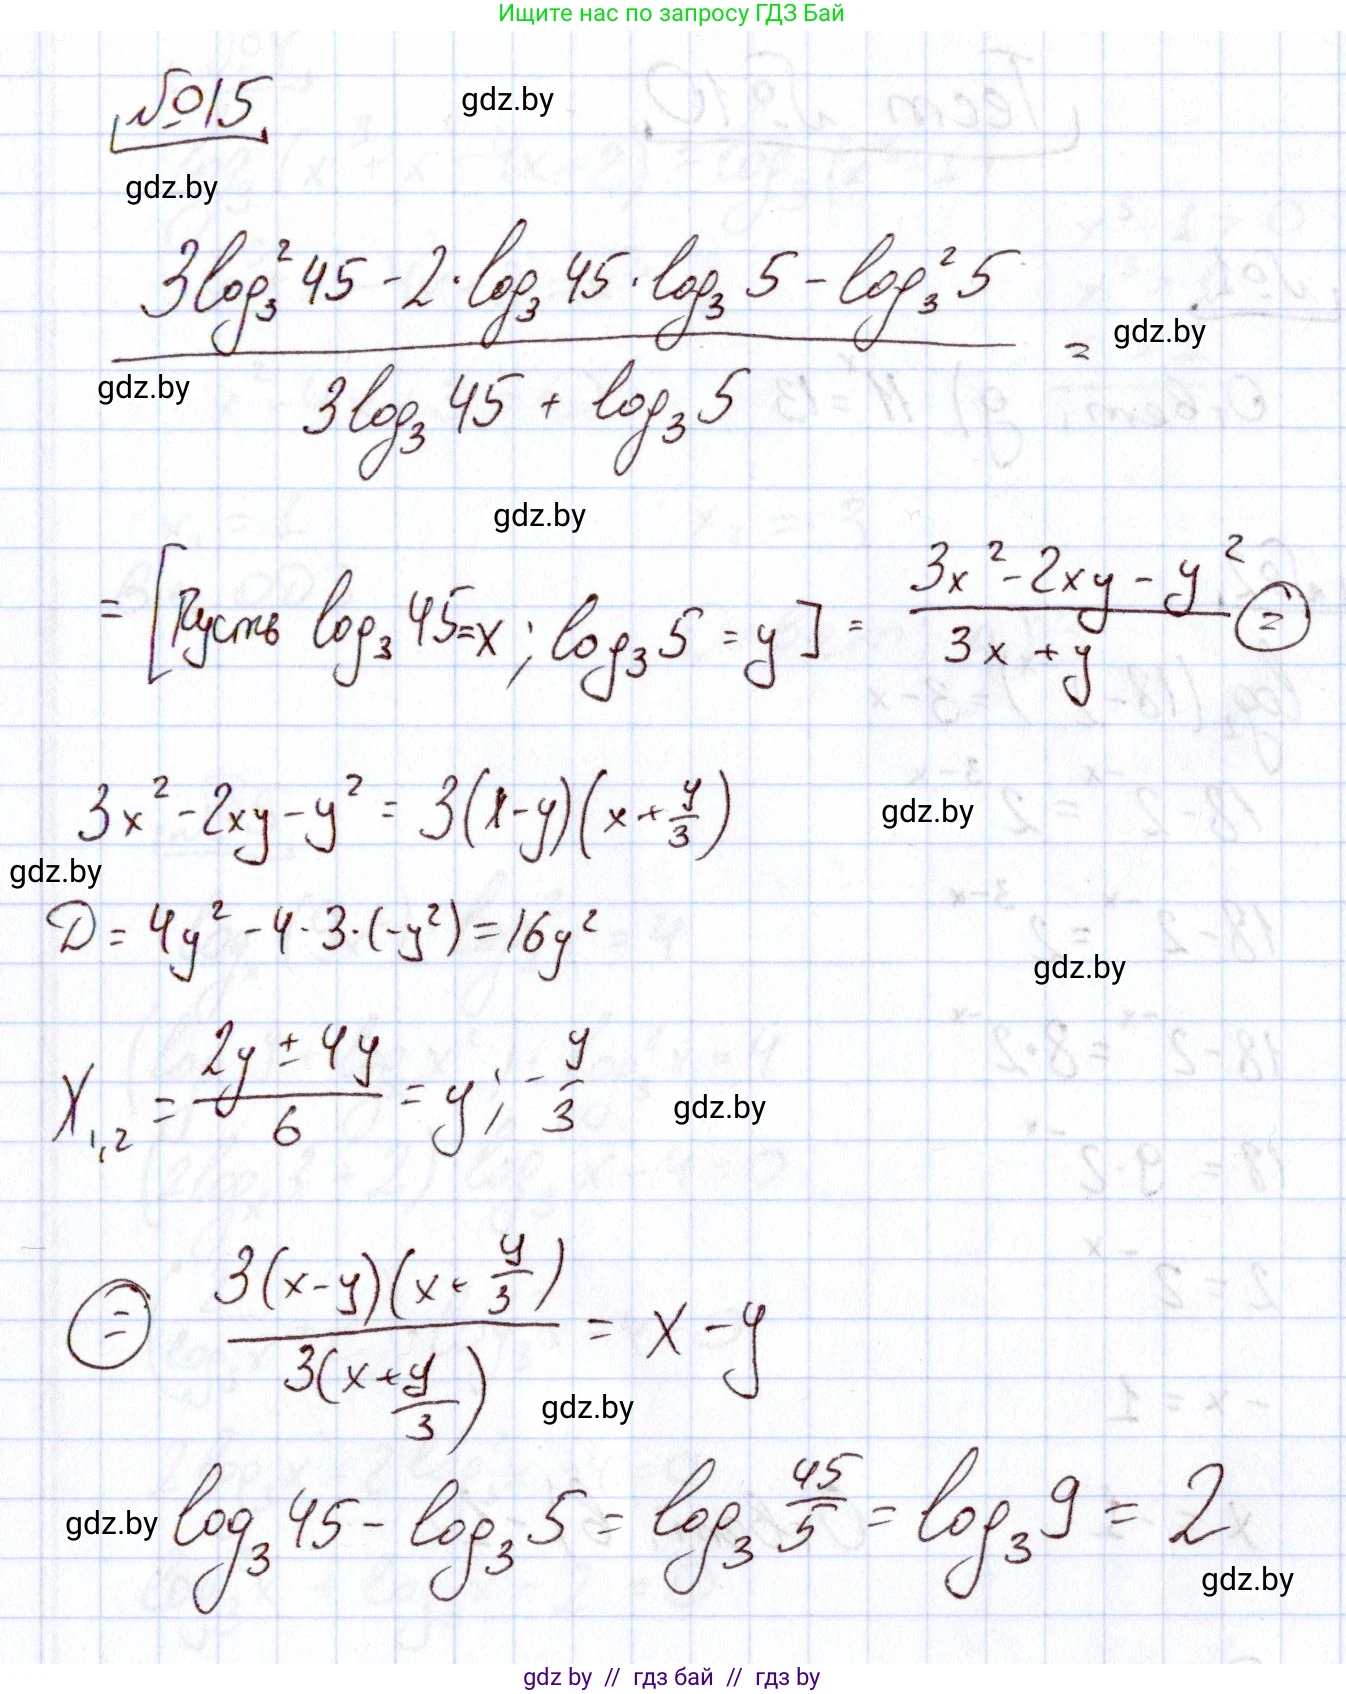 Ищите нас по запросу ГДЗ Бай
№15
gdz.by
gdz.by
3log₃²45 - 2·log₃45·log₃5 - log₃²5
=
gdz.by
gdz.by
3log₃45 + log₃5
gdz.by
= [Пусть log₃45=x; log₃5=y] = (3x²-2xy-y²)/(3x+y) (=)
3x²-2xy-y² = 3(x-y)(x+y/3)
gdz.by
gdz.by
D = 4y²-4·3·(-y²)=16y²
gdz.by
x₁,₂ = (2y±4y)/6 = y; -y/3
gdz.by
(=) 3(x-y)(x+y/3)/3(x+y/3) = x-y
gdz.by
gdz.by
log₃45 - log₃5 = log₃45/5 = log₃9 = 2
gdz.by
gdz.by // гдз бай // гдз by